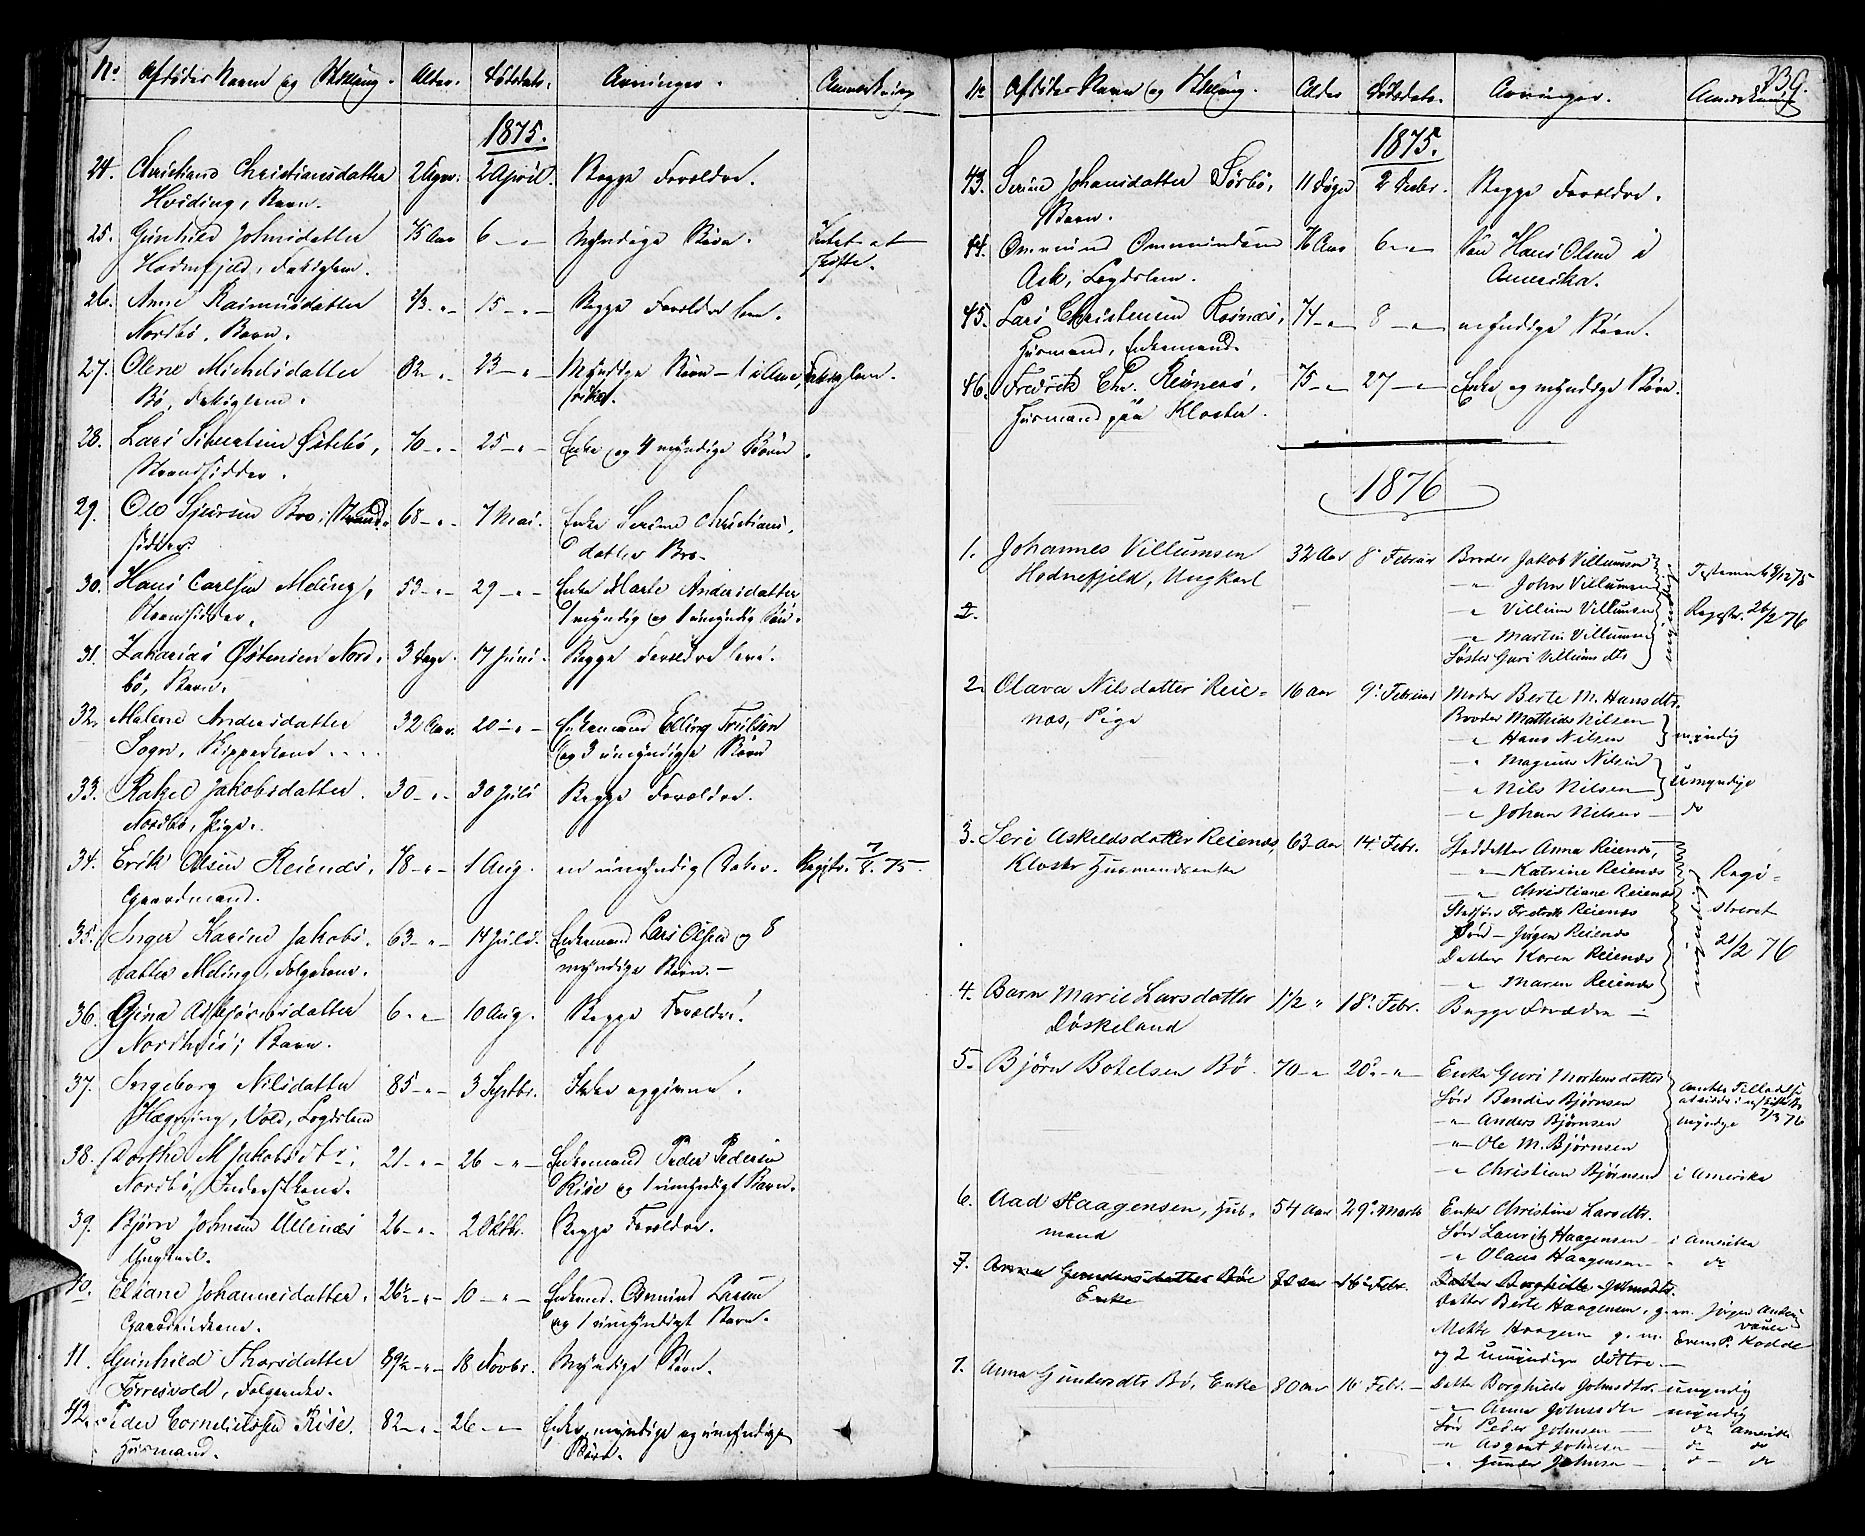 No Afdødes Navn og Stilling. Alder. Dødsdato. Arvinger. Anmærkning
1875.
24. Christiane Christiansdatter 2 Dgr. 2 April. Begge Forældre.
Hviding, Barn.
25. Gunhild Johnsdatter 75 Aar 6 -"- Myndige Børn. Intet at
Hodnefjeld, Fattiglem. skifte.
26. Anne Rasmusdatter 2/3 -"- 15 -"- Begge Forældre leve.
Nordbø, Barn.
27. Olene Michelsdatter 82 -"- 23 -"- Myndige Børn - 1 i Ame- Fattiglem.
Bø, Fattiglem. rika.
28. Lars Sivertsen Østebø, 70 -"- 25 -"- Enke og 4 myndige Børn.
Strandsidder.
29. Ole Sjursen Bro, Strand- 68 -"- 7 Mai. Enke Serine Christians-
sidder. datter Bro-
30. Hans Carlsen Meling, 53 -"- 29 -"- Enke Marte Andersdatter
Strandsidder. 1 myndig og 1 umyndig Søn.
31. Zakarias Østensen Nord- 3 Dage. 17 Juni. Begge Forældre leve.
bø, Barn.
32. Malene Andersdatter 32 Aar. 20 -"- Enkemand Elling
Sogn, og 3 umyndige Børn
33. Rakel Jakobsdatter 30 -"- 30 Juli Begge Forældre.
Nordbø, Pige.
34. Erik Olsen Reienæs, 78 -"- 1 Aug. en umyndig Datter. Registr. 7/8. 75.
Gaardmand.
35. Inger Karine Jakobs- 63 -"- 14 Juli. Enkemand Lars Olsen og 8
datter Meling, Folgekone. myndige Børn. -
36. Gina Asbjørnsdatter 6 -"- 10 Aug. Begge Forældre.
Nordhus, Barn.
37. Ingeborg Nilsdatter 85 -"- 3 Septbr. Ikke opgivne.
Hægning, Vold, Lægdslem
38. Dorthe M. Jakobsdtr. 21 -"- 26 -"- Enkemand Peder Pedersen
Nordbø, Inderstkone. Rise og 1 umyndigt Barn.
39. Bjørn Johnsen Ullenæs 26 -"- 2 Oktbr. Begge Forældre.
Ungkarl.
40. Eliane Johannesdatter, 26½ -"- 10 -"- Enkemd. Omund Larsen
og 1 umyndigt Barn.
41. Gunhild Thorsdatter 89½ -"- 18 Novbr. Myndige Børn.
Førresvold, Folgeenke.
42. Peder Corneliussen Rise. 82 -"- 26 -"- Enke, myndige og umyndige
Husmand. Børn.
239.
No Afdødes Navn og Stilling. Alder Dødsdato. Arvinger. Anmærkning
1875.
43. Serine Johansdatter Sørbø, 11 Dage 2 Decbr. Begge Forældre.
Barn.
44. Ommund Ommundsen 76 Aar 6 -"- Søn Hans Olsen i
Ask, Lægdslem. Amerika.
45. Lars Christensen Reienæs, 74 -"- 8 -"- myndige Børn.
Husmand, Enkemand.
46. Fredrik Chr. Reienæs, 75 -"- 27 -"- Enke og myndige Børn.
Husmand paa Kloster.
1876
1. Johannes Villumsen 32 Aar 8 Februar Broder Jakob Villumsen
Hodnefjeld, Ungkarl -"- John Villumsen Testament 9/12 75
2. -"- Villum Villumsen Registr. 26/2 76
-"- Martin Villumsen myndige
Søster Guri Villumsdtr
2. Olava Nilsdatter Reie- 16 aar 9 Februar Moder Berte M. Hansdtr.
næs, Pige Broder Mathias Nilsen
-"- Hans Nilsen myndig
-"- Magnus Nilsen
-"- Nils Nilsen umyndige
-"- Johan Nilsen - do
3. Seri Askeldsdatter Reienæs, 63 aar 14 Febr. Steddatter Anna Reienæs,
Kloster Husmandsenke -"- Katrine Reienæs Regi-
-"- Christiane Reienæs streret
Stedsøn Fredrik Reienæs 21/2 76
Søn - Jørgen Reienæs myndige
Datter Karen Reienæs
-"- Maren Reienæs
4. Barn Marie Larsdatter 1½ " 18 Febr. Begge Forældre -
Døskeland
5. Bjørn Botelsen Bø. 70 -"- 20 -"- Enke Guri Mortensdatter
Søn Bendix Bjørnsen
-"- Anders Bjørnsen myndige 7/3 76
-"- Ole M. Bjørnsen
-"- Christian Bjørnsen i Amerika
6. Aad Haagensen, Hus- 54 aar 29 Marts Enke Christine Larsdtr.
mand Søn Lauritz Haagensen - i Amerika
-"- Olaus Haagensen - do
7. Anna Gundersdatter Bø 80 aar 16 Febr. Datter Borghilde Johnsdtr.
Enke Datter Berte Haagensen, g. m. Jørgen
Mette Haagensen g. m. Even P. Kodde
og 2 umyndige Døttre -
7. Anna Gundersdtr Bø, Enke 80 aar 16 Febr. - Datter Borghilde Johnsdtr - umyndig
-"- Anne Johnsdtr myndig
Søn Peder Johnsen - do Amerika
-"- Asgaut Johnsen - do do
-"- Gunder Johnsen - do - do